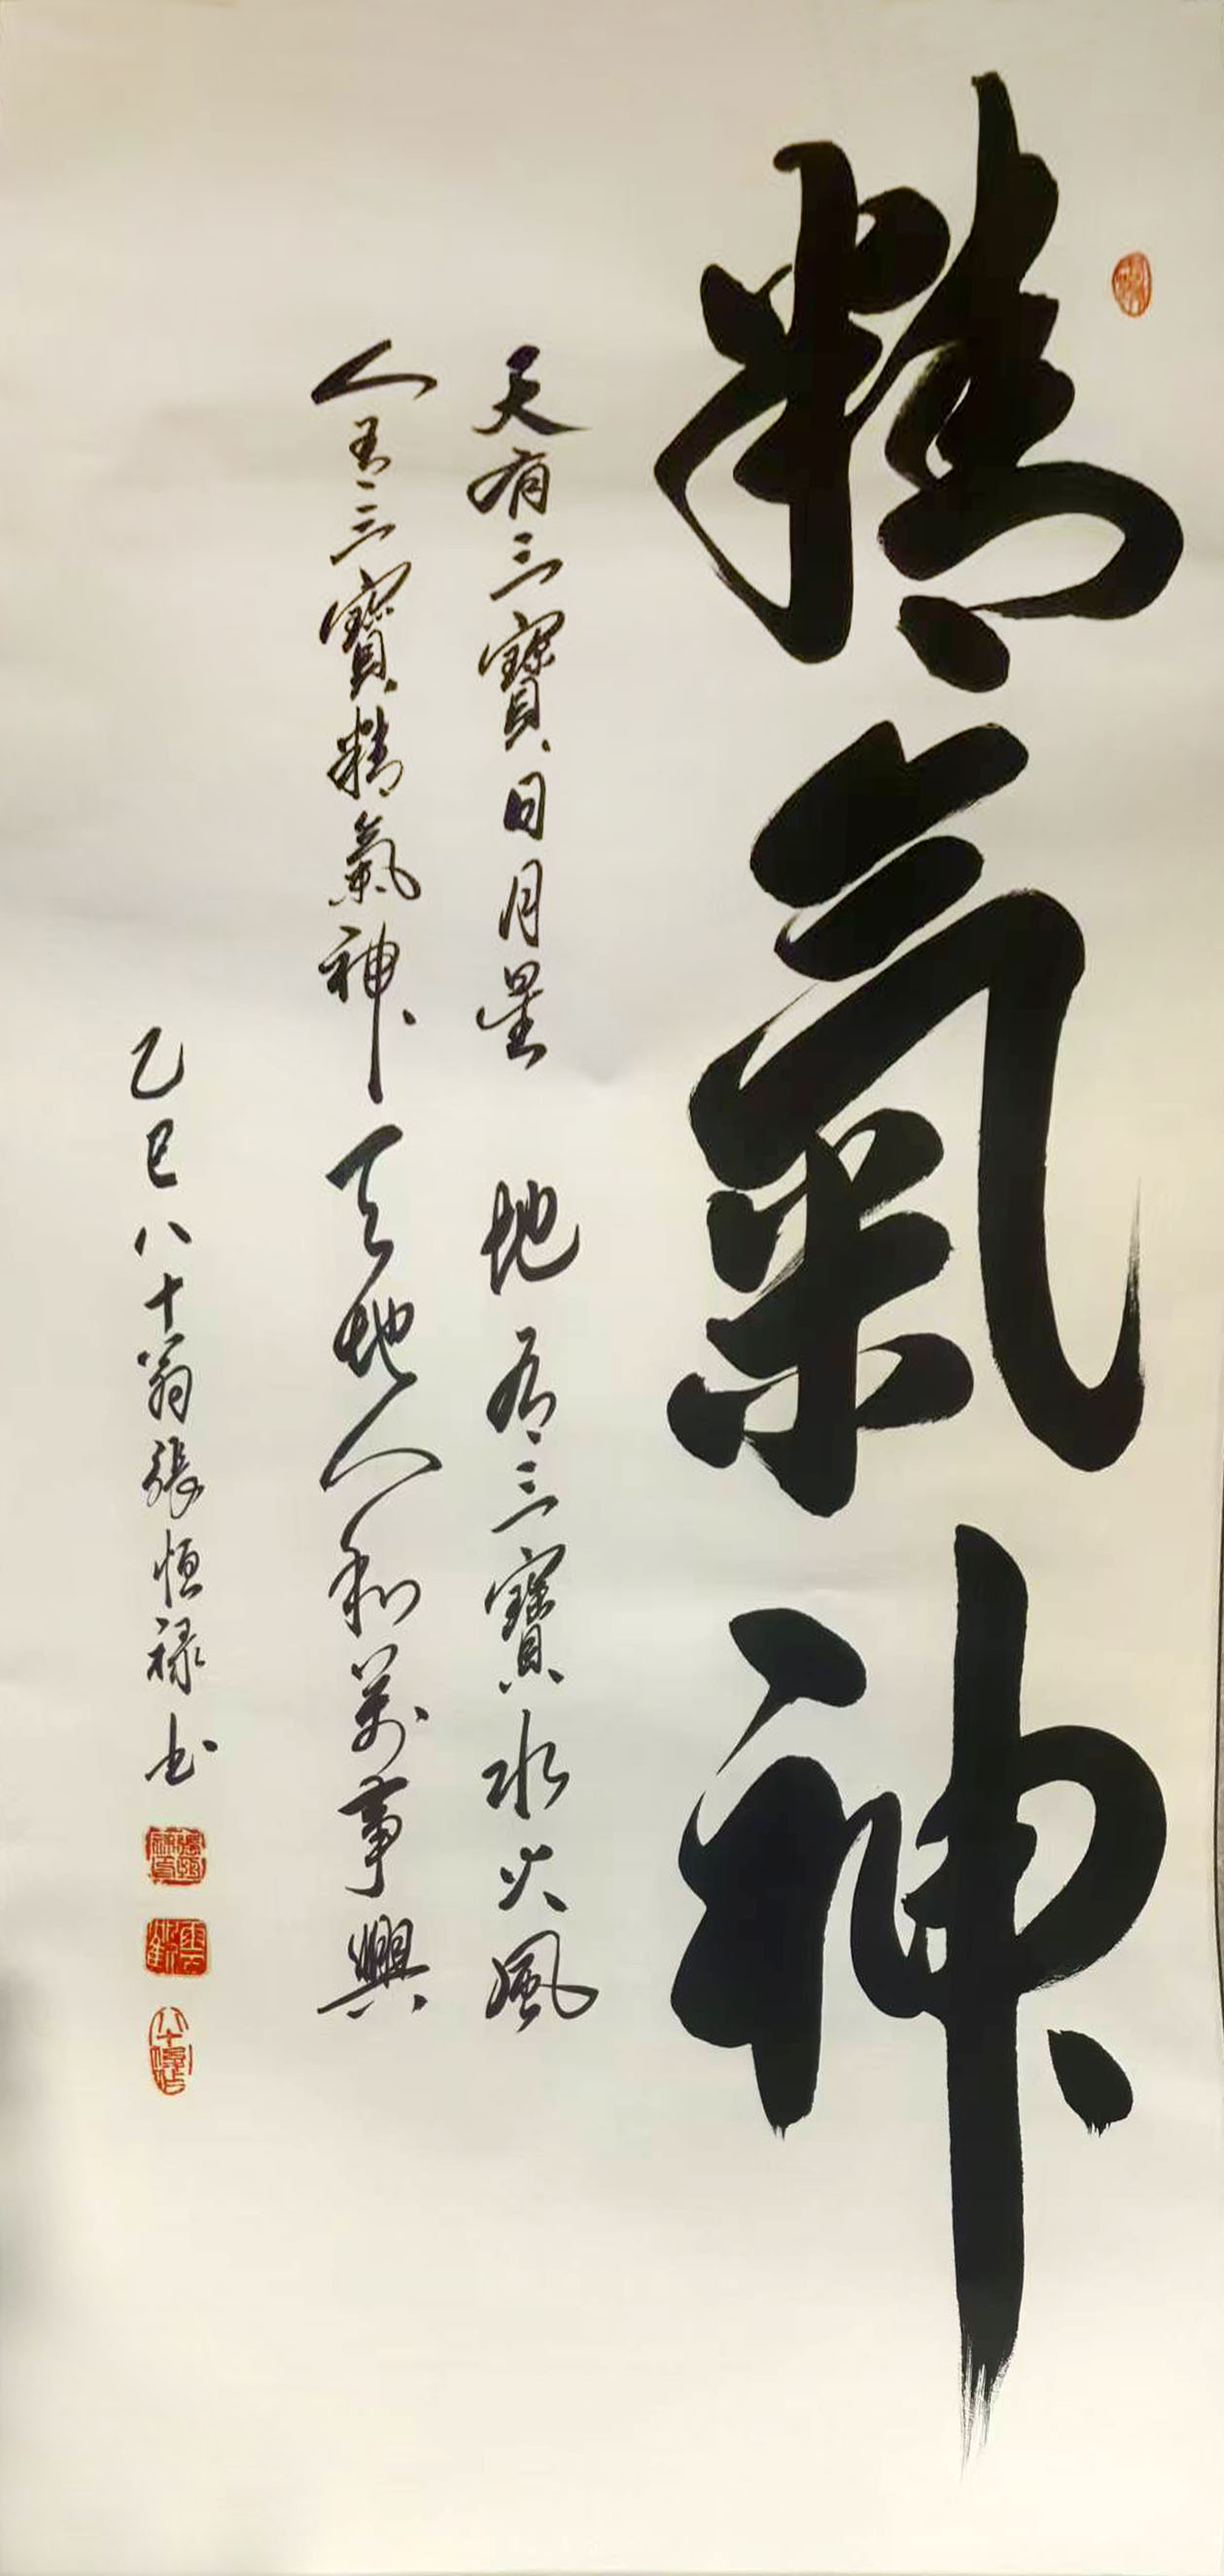 精氣神
天有三寶日月星 地有三寶水火風
人有三寶精氣神 天地人和萬事興
乙巳八十翁張恒禄书